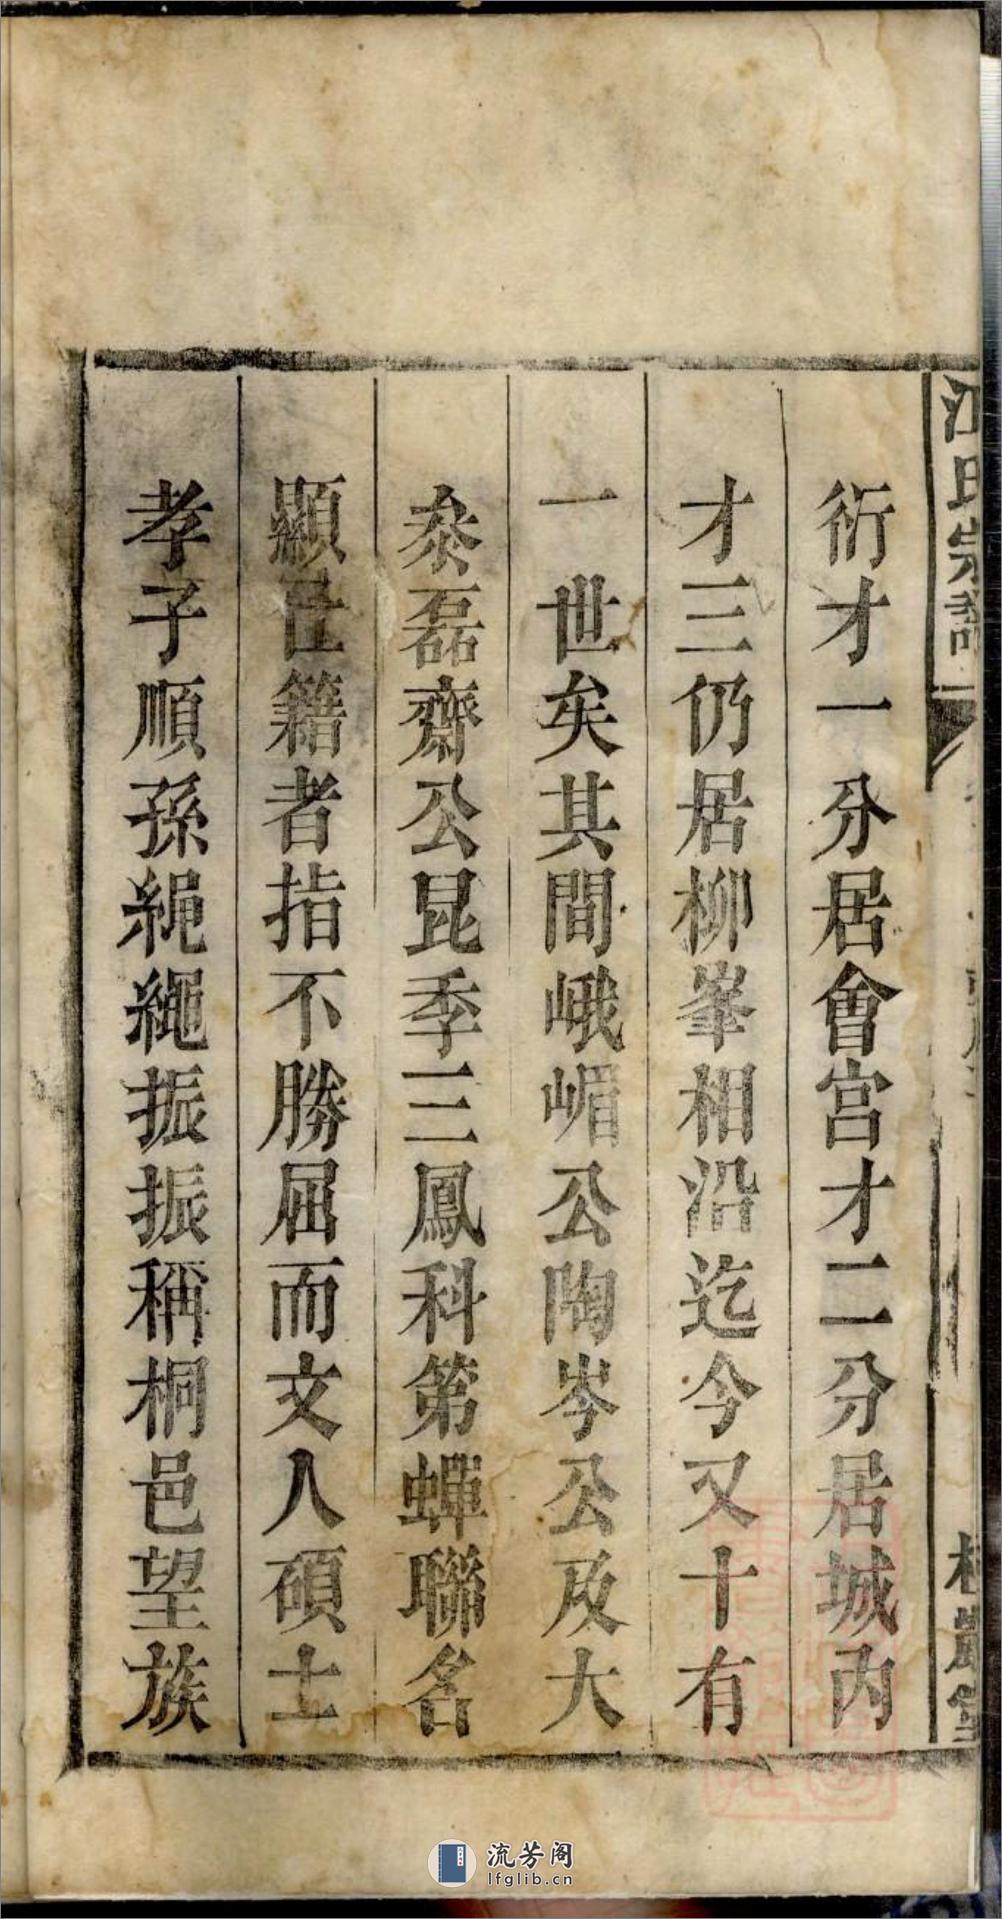 江氏宗譜
衍才一分居會宫才二分居城內
才三仍居柳峯相沿迄今又十有
一世矣其間峨嵋公陶岑公及大
泰磊齋公昆季三鳳科第蟬聯名
顯仕籍者指不勝屈而文人碩士
孝子順孫繩繩振振稱桐邑望族
流芳阁
lfglib.cn